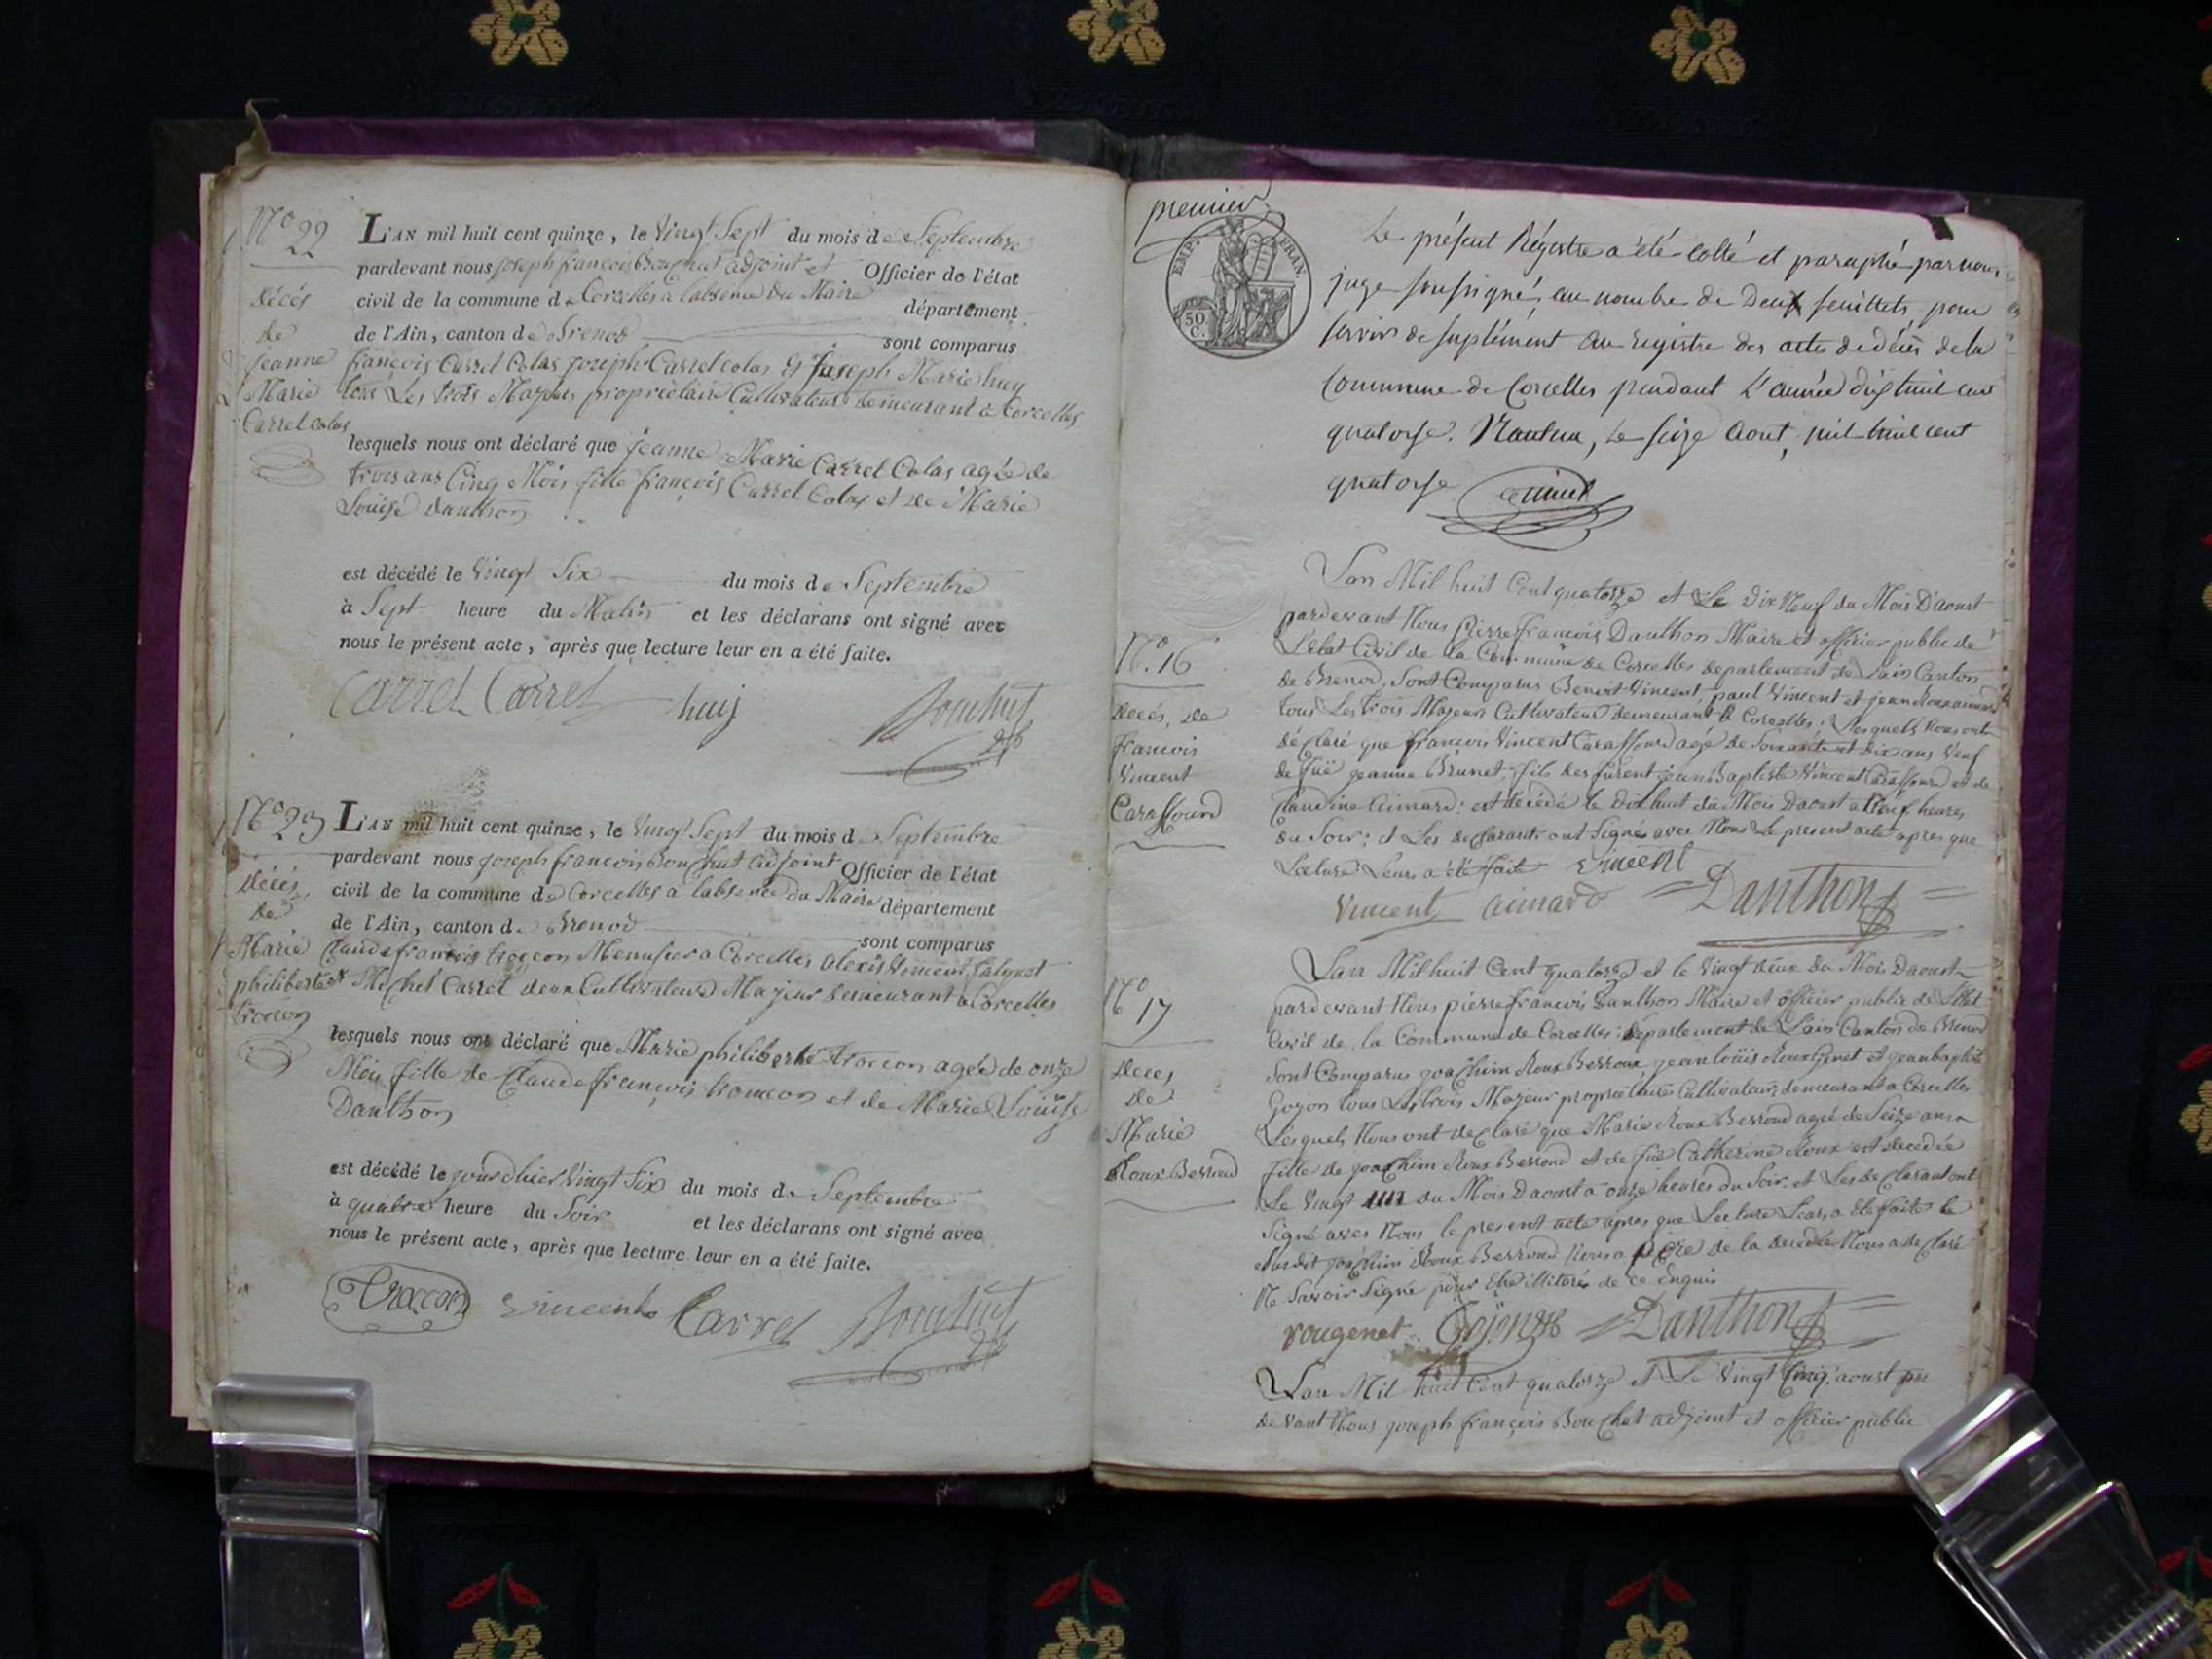 N.o 22
décés
de
jeanne
Marie
Carrel Colas
L'AN mil huit cent quinze, le Vingt Sept du mois de Septembre
pardevant nous joseph françois Bouchut adjoint et Officier de l'état
civil de la commune de Corcelles a labsence du Maire département
de l'Ain, canton de Brenod sont comparus
françois Carrel Colas joseph Carrel colas et joseph Marie huy
tous Les trois Majeurs propriètaire Cultivateurs demeurant à Corcelles
lesquels nous ont déclaré que jeanne Marie Carrel Colas agée de
trois ans Cinq Mois fille françois Carrel Colas et de Marie
Louise Danthon
est décédé le Vingt Six du mois de Septembre
à Sept heure du Matin et les déclarans ont signé avec
nous le présent acte, après que lecture leur en a été faite.
Carrel Carrel huy Bouchut
N.o 23
décés
de
Marie
philiberte
trocon
L'AN mil huit cent quinze, le Vingt Sept du mois de Septembre
pardevant nous joseph françois Bouchut adjoint Officier de l'état
civil de la commune de Corcelles a labsence du Maire département
de l'Ain, canton de Brenod sont comparus
Claude françois trocon Menusier a Corcelles alexis Vincent
et Michel Carrel deux Cultivateurs Majeur demeurant a Corcelles
lesquels nous ont déclaré que Marie philiberte trocon agée de onze
Mois fille de Claude françois trocon et de Marie Louise
Danthon
est décédé le jourdhier Vingt Six du mois de Septembre
à quatre heure du Soir et les déclarans ont signé avec
nous le présent acte, après que lecture leur en a été faite.
Trocon vincent Carrel Bouchut
premier
EMP. FRAN.
50 C.
Le présent Régistre a été cotté et paraphé par nous,
juge soussigné, au nombre de Deux feuillets pour
servir de suplément au registre des actes de décés de la
commune de Corcelles pendant l'année dix huit cent
quatorse. Nantua, le seize Aout, mil huit cent
quatorse
N.o 16
décés, de
francois
Vincent
Carassourd
Lan Mil huit Cent quatorze et Le dix Neuf du Mois D'aoust
pardevant Nous Pierre francois Danthon Maire et officier public de
L'état Civil de la Commune de Corcelles departement de Lain Canton
de Brenod, Sont Comparus Benoit Vincent, paul Vincent et jean Roux aimard
tous Les trois Majeurs Cultivateurs demeurant a Corcelles. Lesquels Nous ont
déclaré que françois Vincent Carassourd agé de Soixante et dix ans Veuf
de fuë jeanne Brunet, fils des furent jean Baptiste Vincent Carassourd et de
Claudine aimard: est décédé le dix huit du Mois Daoust a Neuf heures
du Soir; et Les declarants ont Signés avec Nous Le present acte apres que
Lecture Leurs a été faite vincent
Vincent aimard Danthon
N.o 17
Deces
de
Marie
Roux Berroud
Lan Mil huit Cent quatorze et le Vingt deux du Mois Daoust
pardevant Nous pierre francois Danthon Maire et officier public de Létat
Civil de la Commune de Corcelles: departement de Lain Canton de Brenod
Sont Comparus joachim Roux Berroux, jean louis Roux Genet et jean baptiste
Gojon tous Les trois Majeur proprietaires Cultivateurs, demeurant a Corcelles
Lesquels Nous ont declaré que Marie Roux Berroud agée de Seize ans
fille de joachim Roux Berroud et de fuë Catherine Roux est decedée
Le Vingt un du Mois Daoust à onze heures du Soir. et Les declarant ont
Signé avec Nous le present acte apres que Lecture Leurs a été faite le
susdit joachim Roux Berroud pere de la decedée Nous a declaré
Ne Savoir Signé pour Etre illiteré de ce Enquis
rougenet Gojon Danthon
Lan Mil huit Cent quatorze et Le Vingt Cinq aoust par
devant Nous joseph françois Bouchut adjoint et officier public